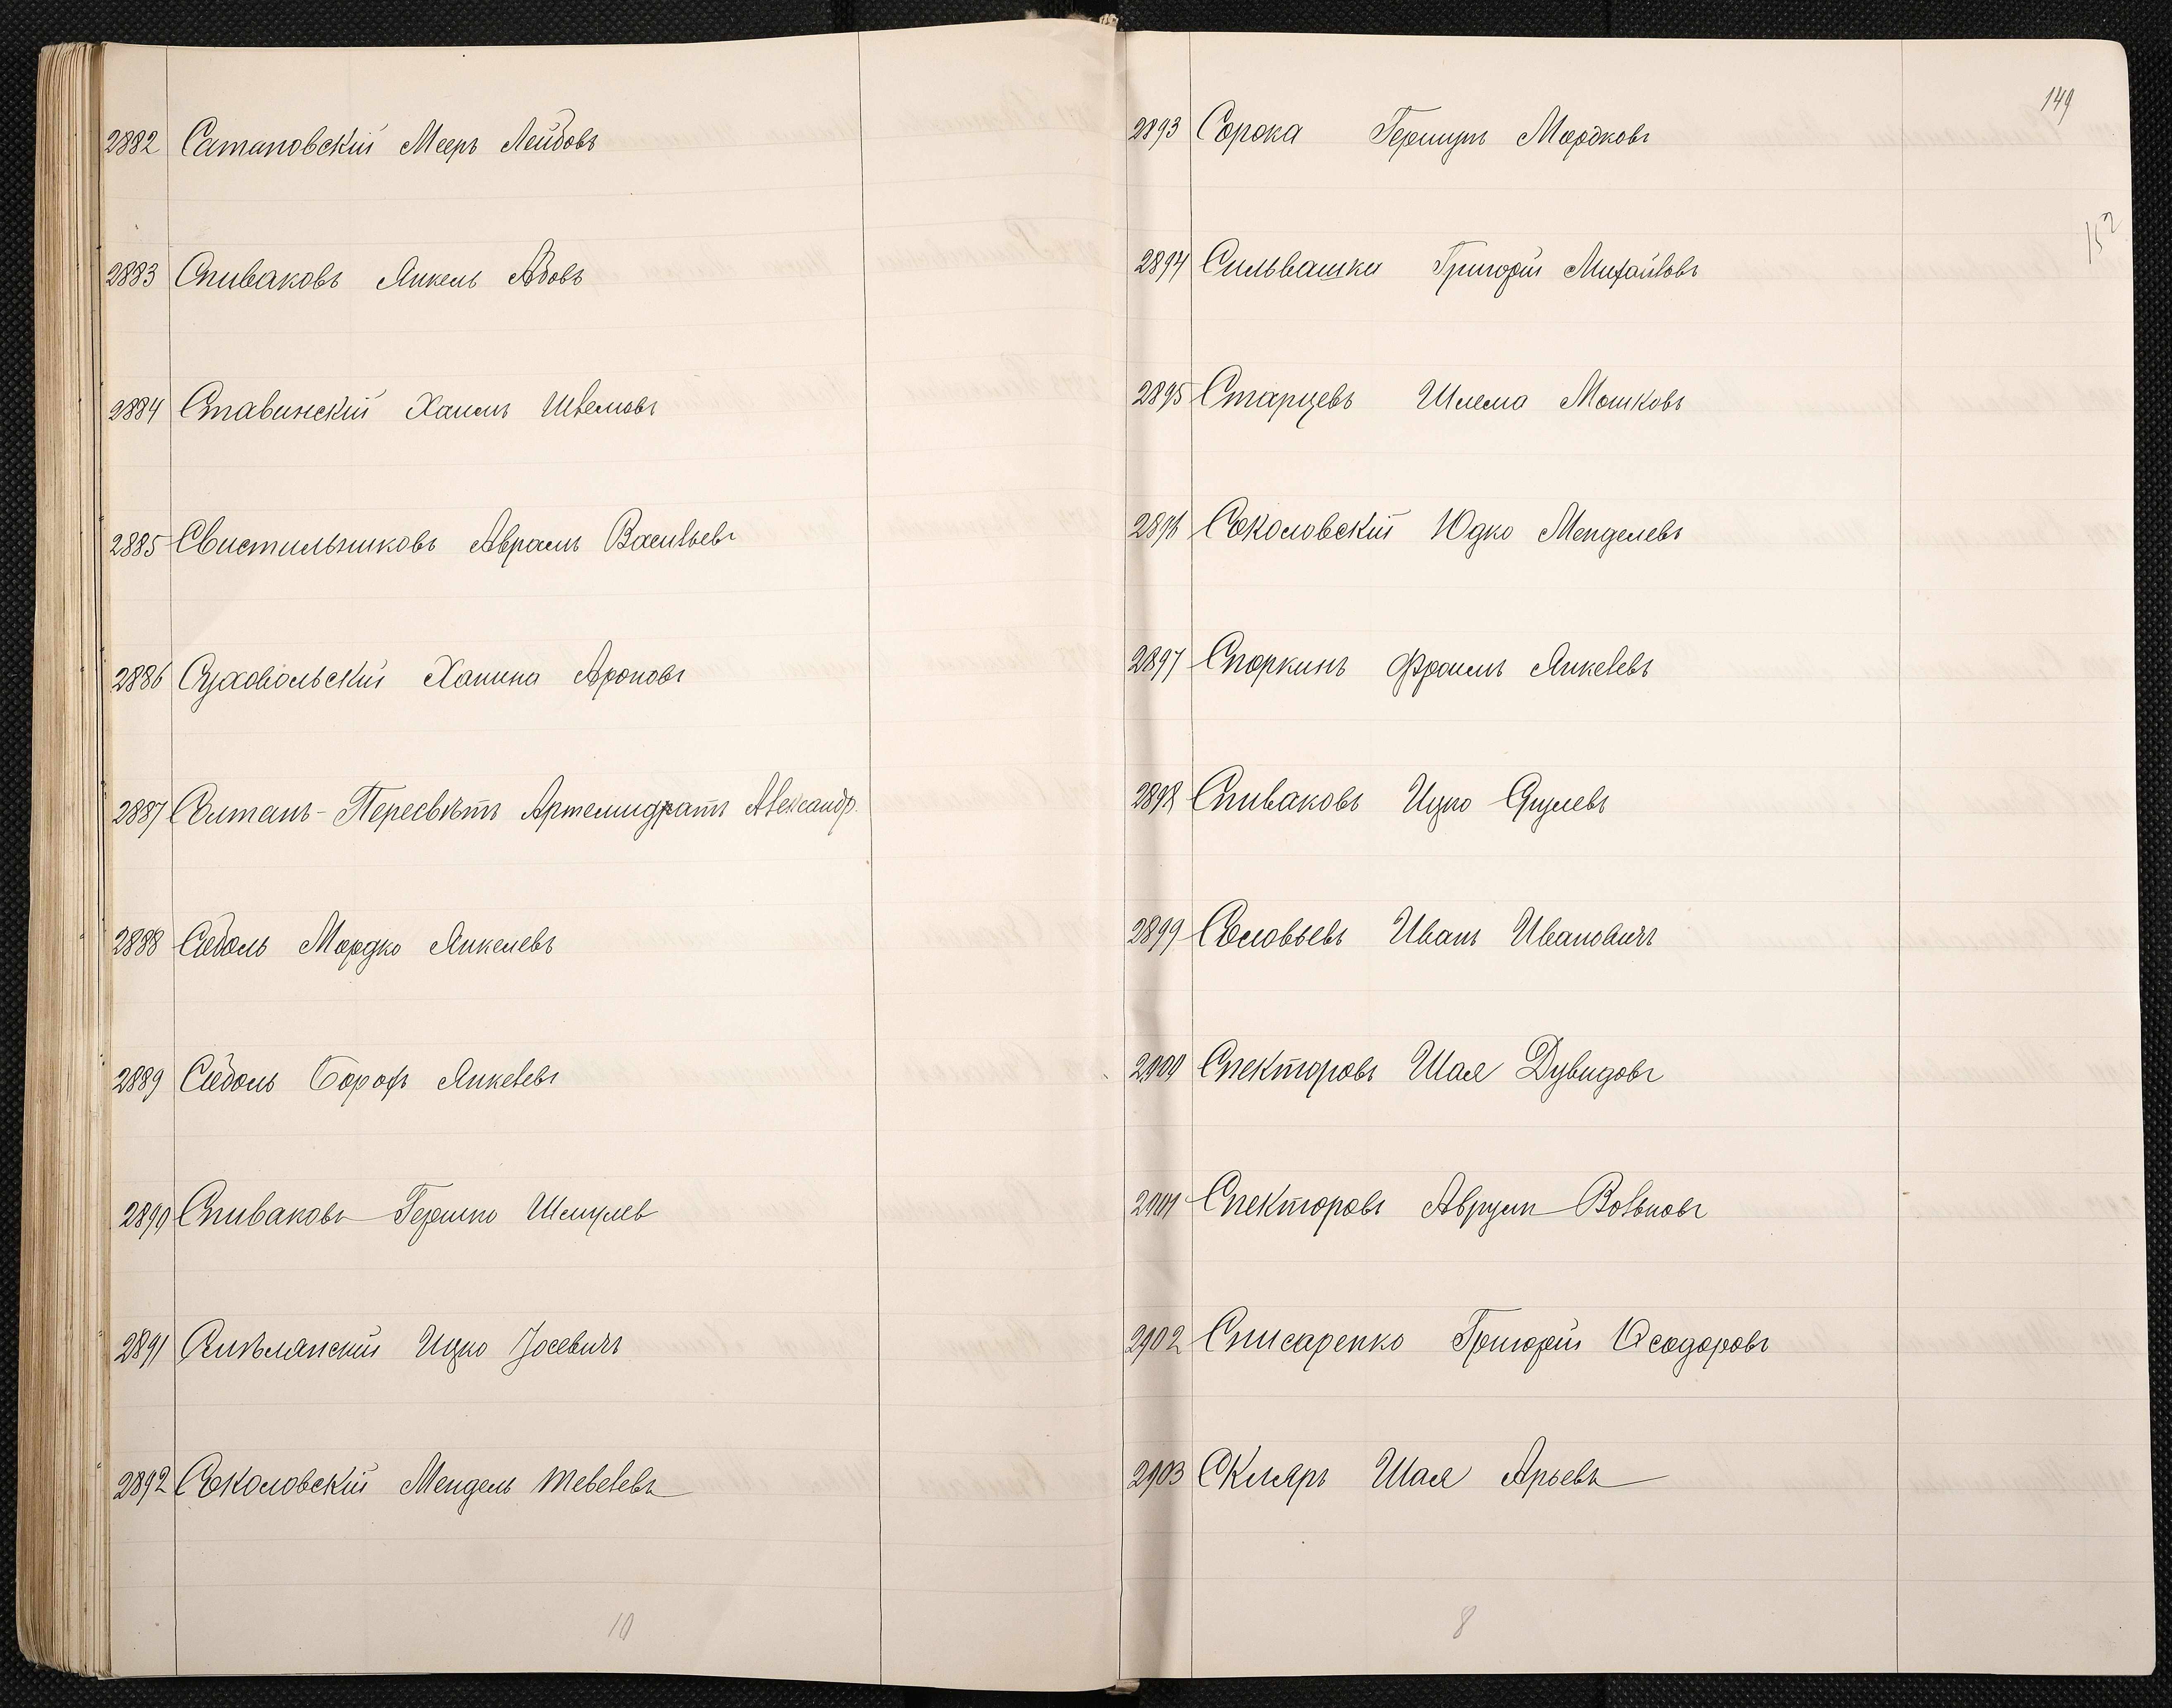 2882 Сатановскій Мееръ Лейбовъ
2883 Спиваковъ Янкель Абовъ
2884 Ставинскій Хаимъ Шлемовъ
2885 Свистильниковъ Аврамъ Васильевъ
2886 Суховольскій Ханина Ароновъ
2887 Солтанъ-Пересвѣтъ Александр.
2888 Сѣдоль Мордко Янкелевъ
2889 Сѣдоль Борохъ Янкелевъ
2890 Спиваковъ Гершко Шмулев
2891 Ицко Іосевичъ
2892 Соколовскій Мендель Тевелевъ
10
149
152
2893 Сорока Гершунъ Мордковъ
2894 Сильвашки Григорій Михайловъ
2895 Старцевъ Шлема Мошковъ
2896 Соколовскій Юдко Менделевъ
2897 Споркинъ Фроимъ Янкелевъ
2898 Спиваковъ Ицко Сруلевъ
2899 Соловьевъ Иванъ Ивановичъ
2900 Спекторовъ Шая Дувидовъ
2901 Спекторовъ Аврум Вольковъ
2902 Списаренко Григорій Ѳеодоровъ
2903 Скляръ Шая Арьевъ
8